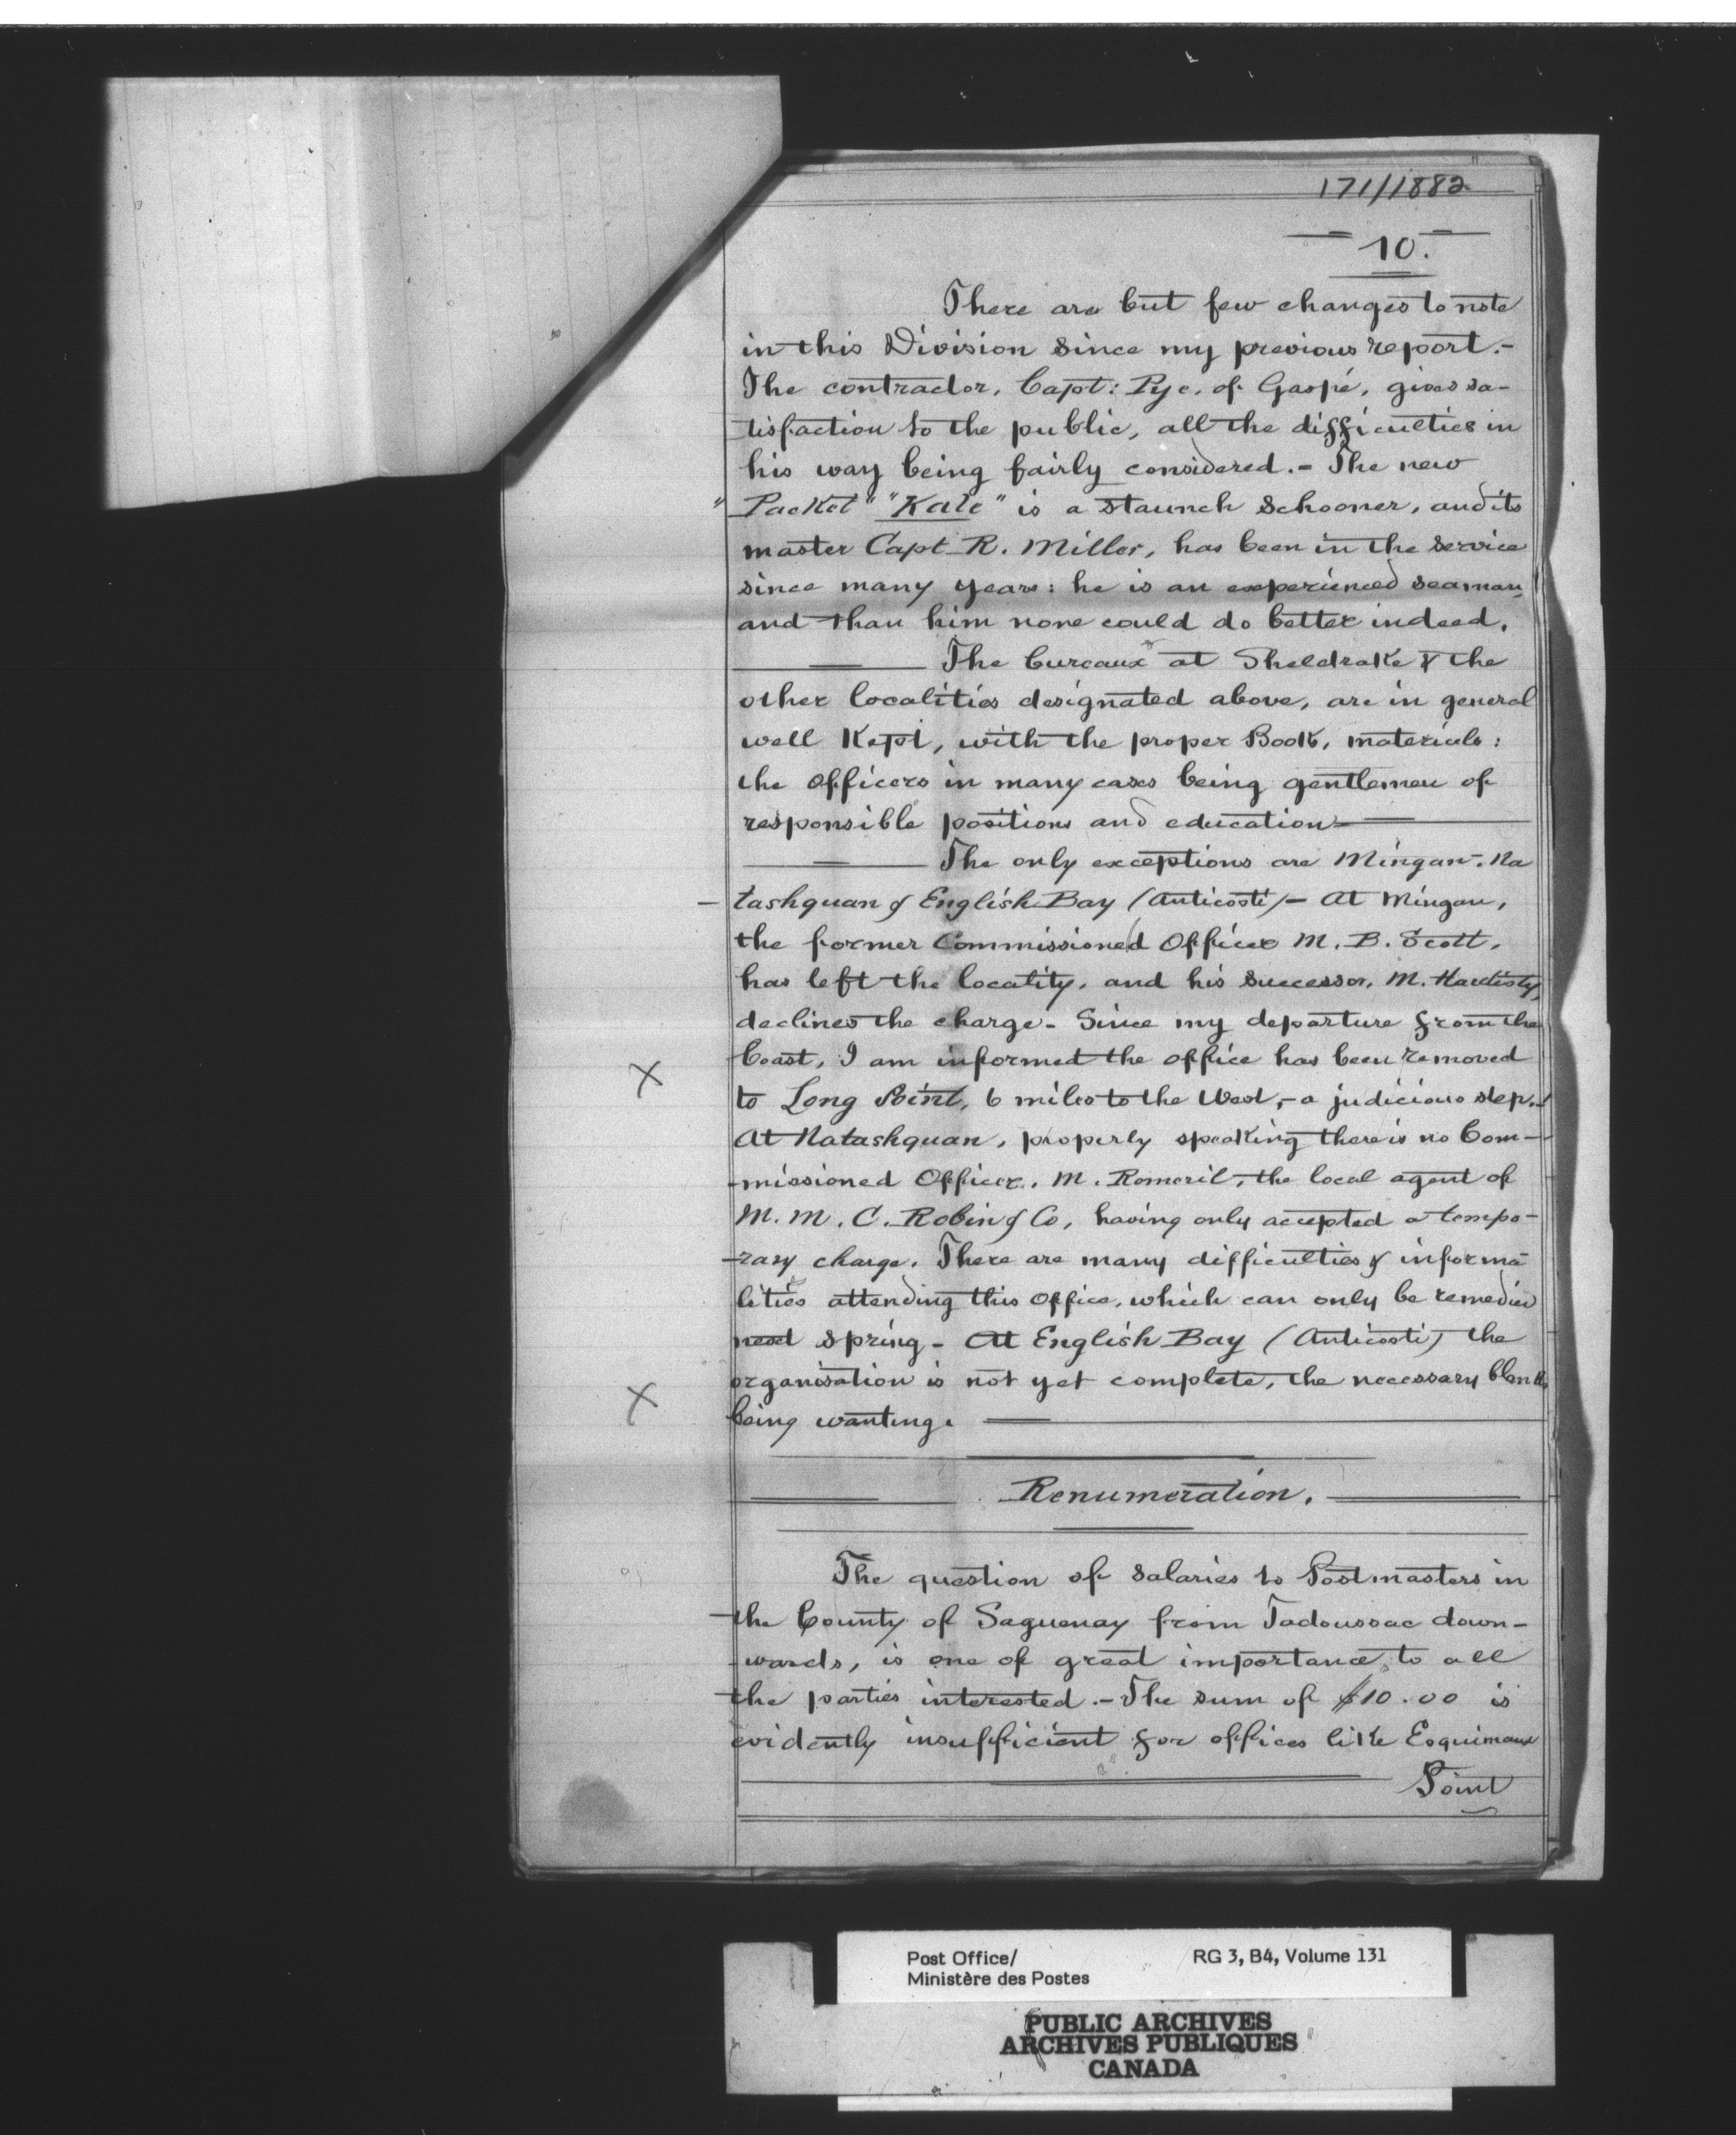 171/1882
10.
There are but few changes to note
in this Division since my previous report.-
The contractor, Capt: Pye, of Gaspé, gives sa-
tisfaction to the public, all the difficulties in
his way being fairly considered.- The new
"Packet" "Kate" is a staunch schooner, and its
master Capt R. Miller, has been in the service
since many years: he is an experienced seaman,
and than him none could do better indeed.
The bureaux at Sheldrake & the
other localities designated above, are in general
well Kept, with the proper Books, materials:
the officers in many cases being gentlemen of
responsible positions and education-
The only exceptions are Mingan-, Na
-tashquan & English Bay (Anticosti)- At Mingan,
the former Commissioned Officer M. B. Scott,
has left the locality, and his successor, M. Hardisty,
declines the charge- Since my departure from the
Coast, I am informed the office has been removed
X
to Long Point, 6 miles to the West,- a judicious step.-
At Natashquan, properly speaking there is no Com-
-missioned Officer, M. Romeril, the local agent of
M.M. C. Robin & Co, having only accepted a tempo-
-rary charge. There are many difficulties & informa-
lities attending this office, which can only be remedied
next spring- At English Bay (Anticosti) the
organisation is not yet complete, the necessary blanks
X
being wanting.
Renumeration.
The question of salaries to Postmasters in
the County of Saguenay from Tadoussac down-
-wards, is one of great importance to all
the parties interested.- The sum of $10.00 is
evidently insufficient for offices like Esquimaux
Point
Post Office/
Ministère des Postes
RG 3, B4, Volume 131
PUBLIC ARCHIVES
ARCHIVES PUBLIQUES
CANADA